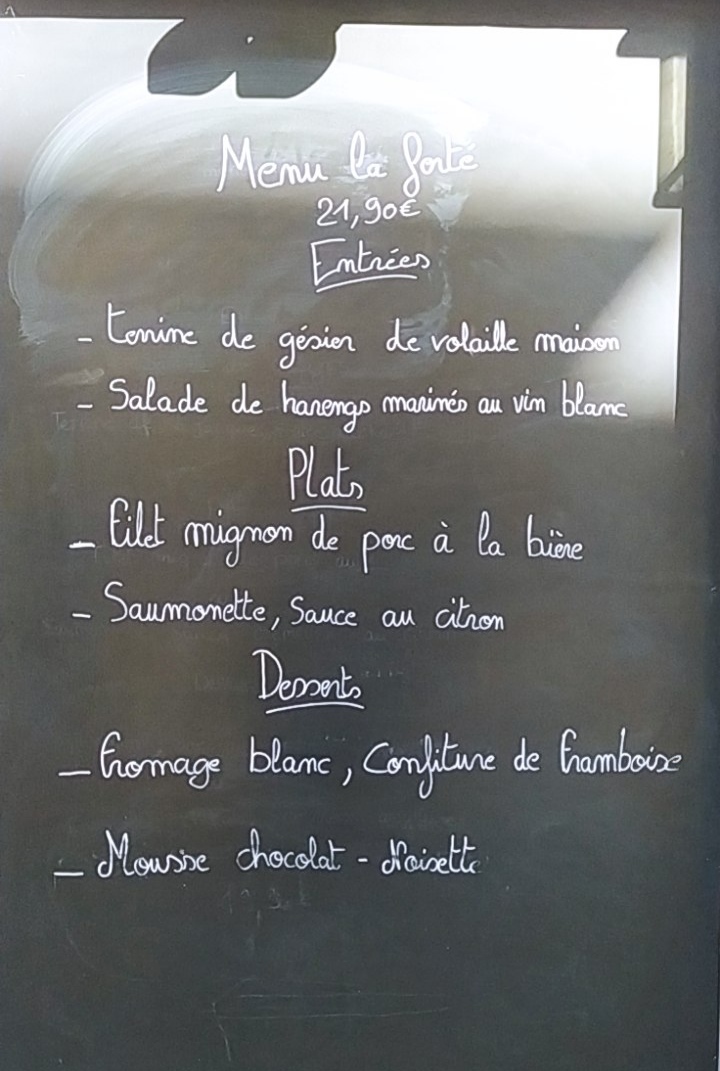 Menu la forté
21,90€
Entrées
- terrine de gésier de volaille maison
- Salade de harengs marinés au vin blanc
Plats
- Filet mignon de porc à la bière
- Saumonette, Sauce au citron
Desserts
- Fromage blanc, Confiture de Framboise
- Mousse chocolat - Noisette